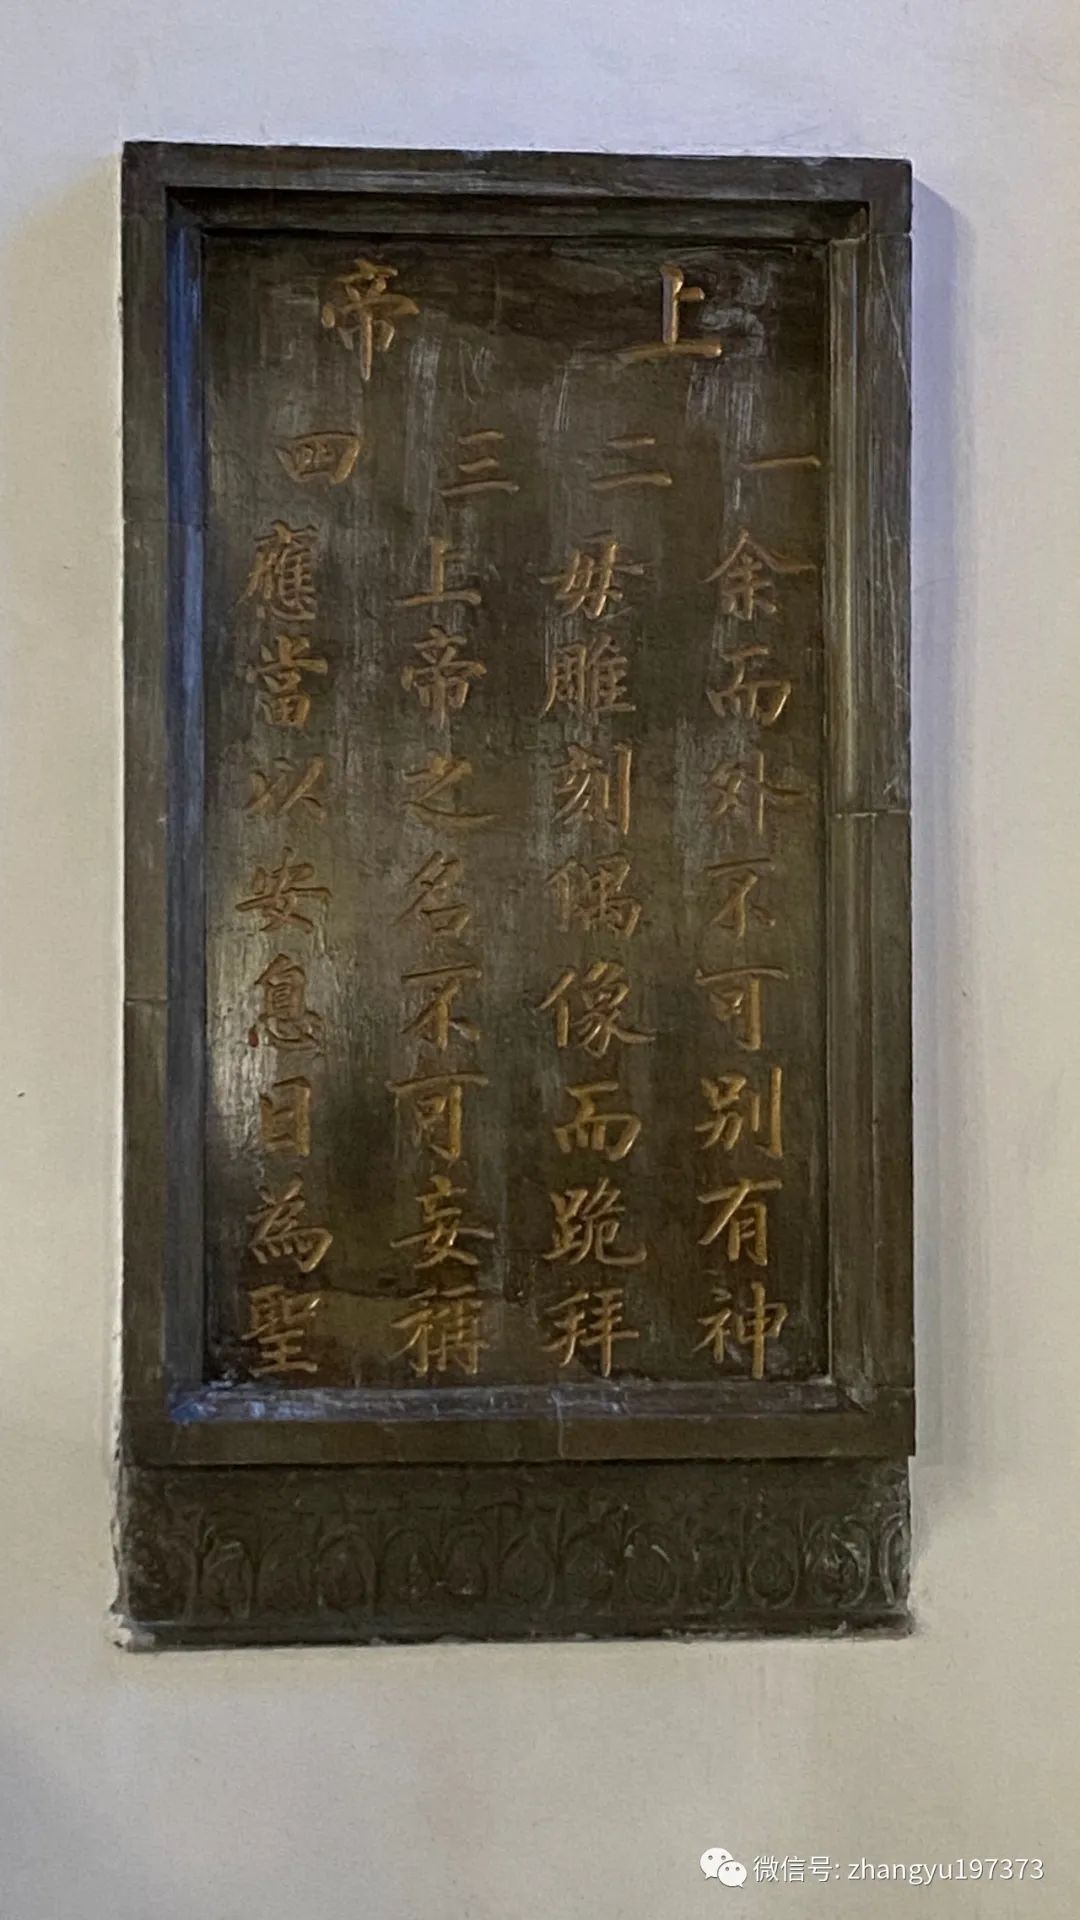 上帝
一 余而外不可别有神
二 毋雕刻偶像而跪拜
三 上帝之名不可妄稱
四 應當以安息日為聖
微信号: zhangyu197373